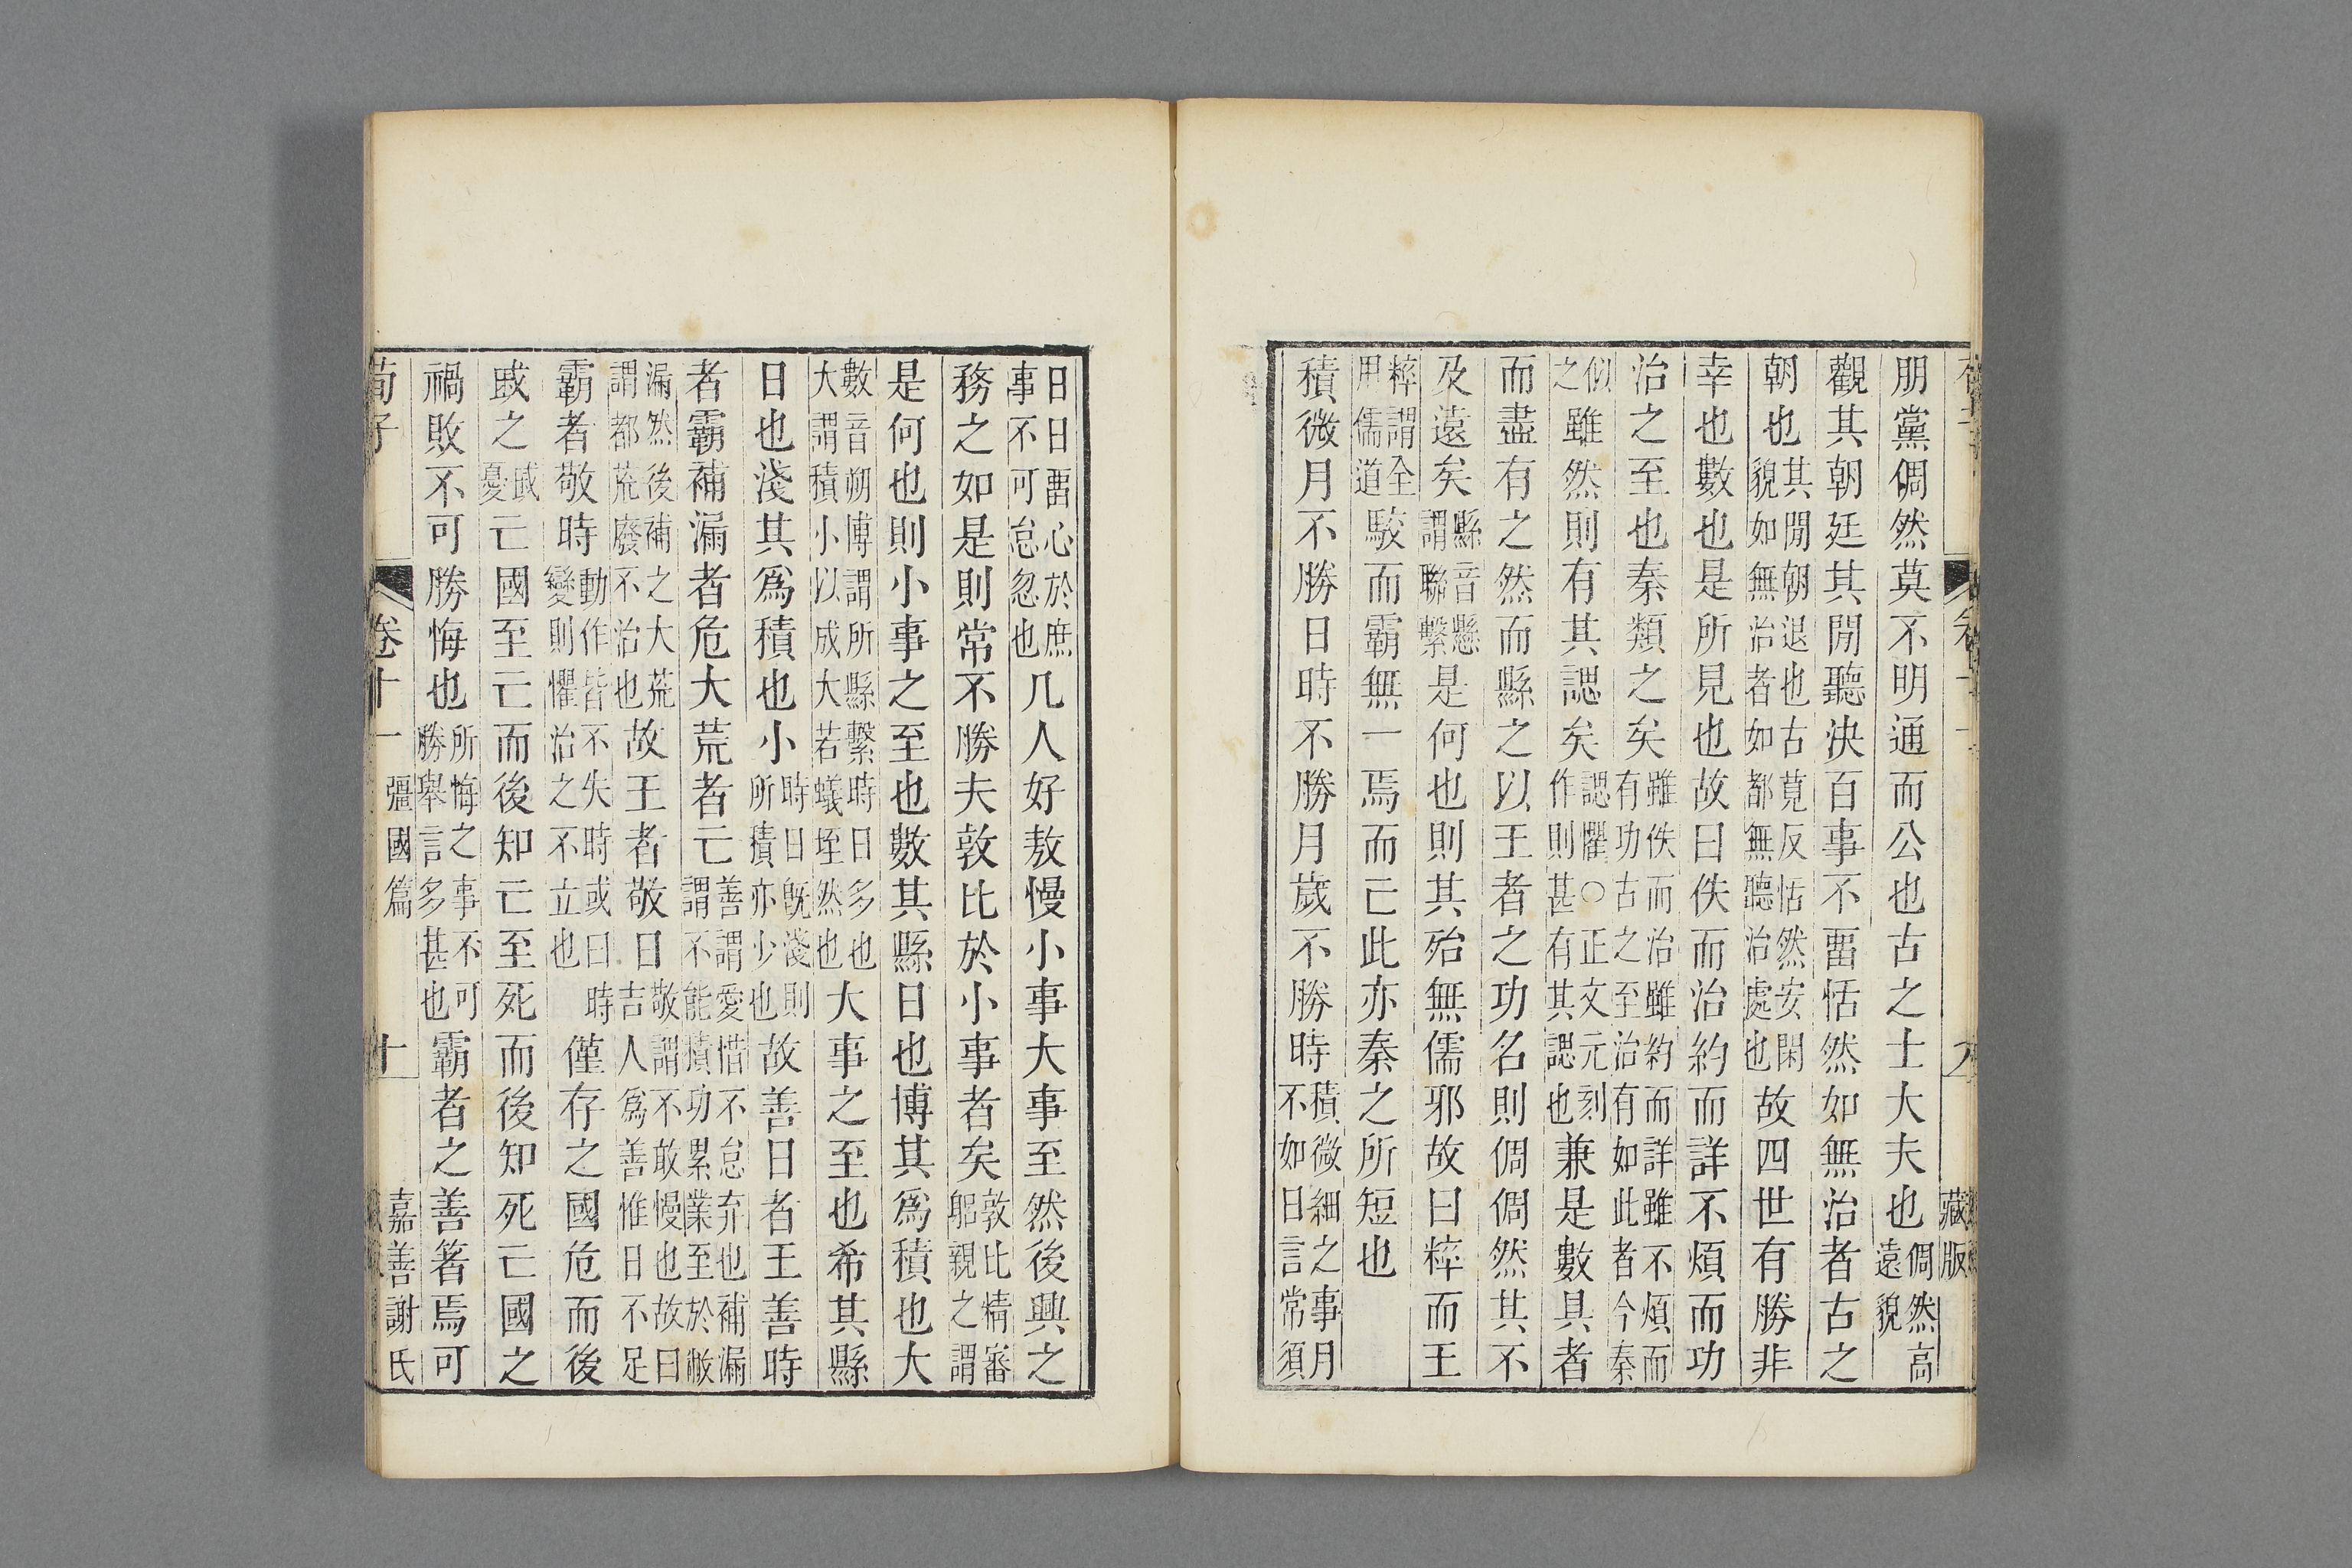 朋黨倜然莫不明通而公也古之士大夫也倜然高遠貌
觀其朝廷其閒聽決百事不畱恬然如無治者古之
朝也其閒朝退也古莧反恬然安閑貌如無治者如都無聽治處也故四世有勝非
幸也數也是所見也故曰佚而治約而詳不煩而功
治之至也秦類之矣雖佚而治雖約而詳雖不煩而有功古之至治有如此者今秦
似之雖然則有其諰矣諰懼○正文元刻作則甚有其諰也兼是數具者
而盡有之然而縣之以王者之功名則倜倜然其不
及遠矣縣音懸謂聯繫是何也則其殆無儒邪故曰粹而王
粹謂全用儒道駮而霸無一焉而亡此亦秦之所短也
積微月不勝日時不勝月歲不勝時積微細之事月不如日言常須
日日畱心於庶事不可怠忽也凡人好敖慢小事大事至然後興之
務之如是則常不勝夫敦比於小事者矣敦比精審躬親之謂
是何也則小事之至也數其縣日也博其爲積也大
數音朔博謂所縣繫時日多也大謂積小以成大若蟻垤然也大事之至也希其縣
日也淺其爲積也小時日旣淺則所積亦少也故善日者王善時
者霸補漏者危大荒者亡善謂愛惜不怠弃也補漏謂不能積功累業至於敝
漏然後補之大荒謂都荒廢不治也故王者敬日敬謂不敢慢也故曰吉人爲善惟日不足
霸者敬時動作皆不失時或曰時變則懼治之不立也僅存之國危而後
戚之戚憂亡國至亡而後知亡至死而後知死亡國之
禍敗不可勝悔也所悔之事不可勝舉言多甚也霸者之善箸焉可
荀子 卷十一 彊國篇 十 嘉善謝氏
藏版